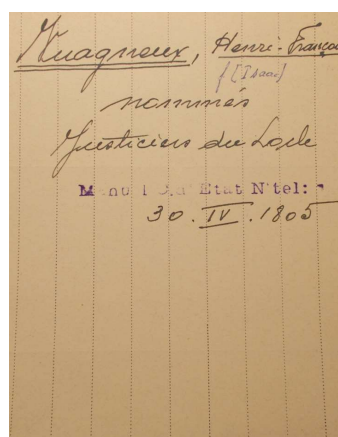 Vuagneux, Henri-Françoi
f [Isaac]
nommés
Justiciers du Locle
Manuel d'Etat N'tel:
30.IV.1805